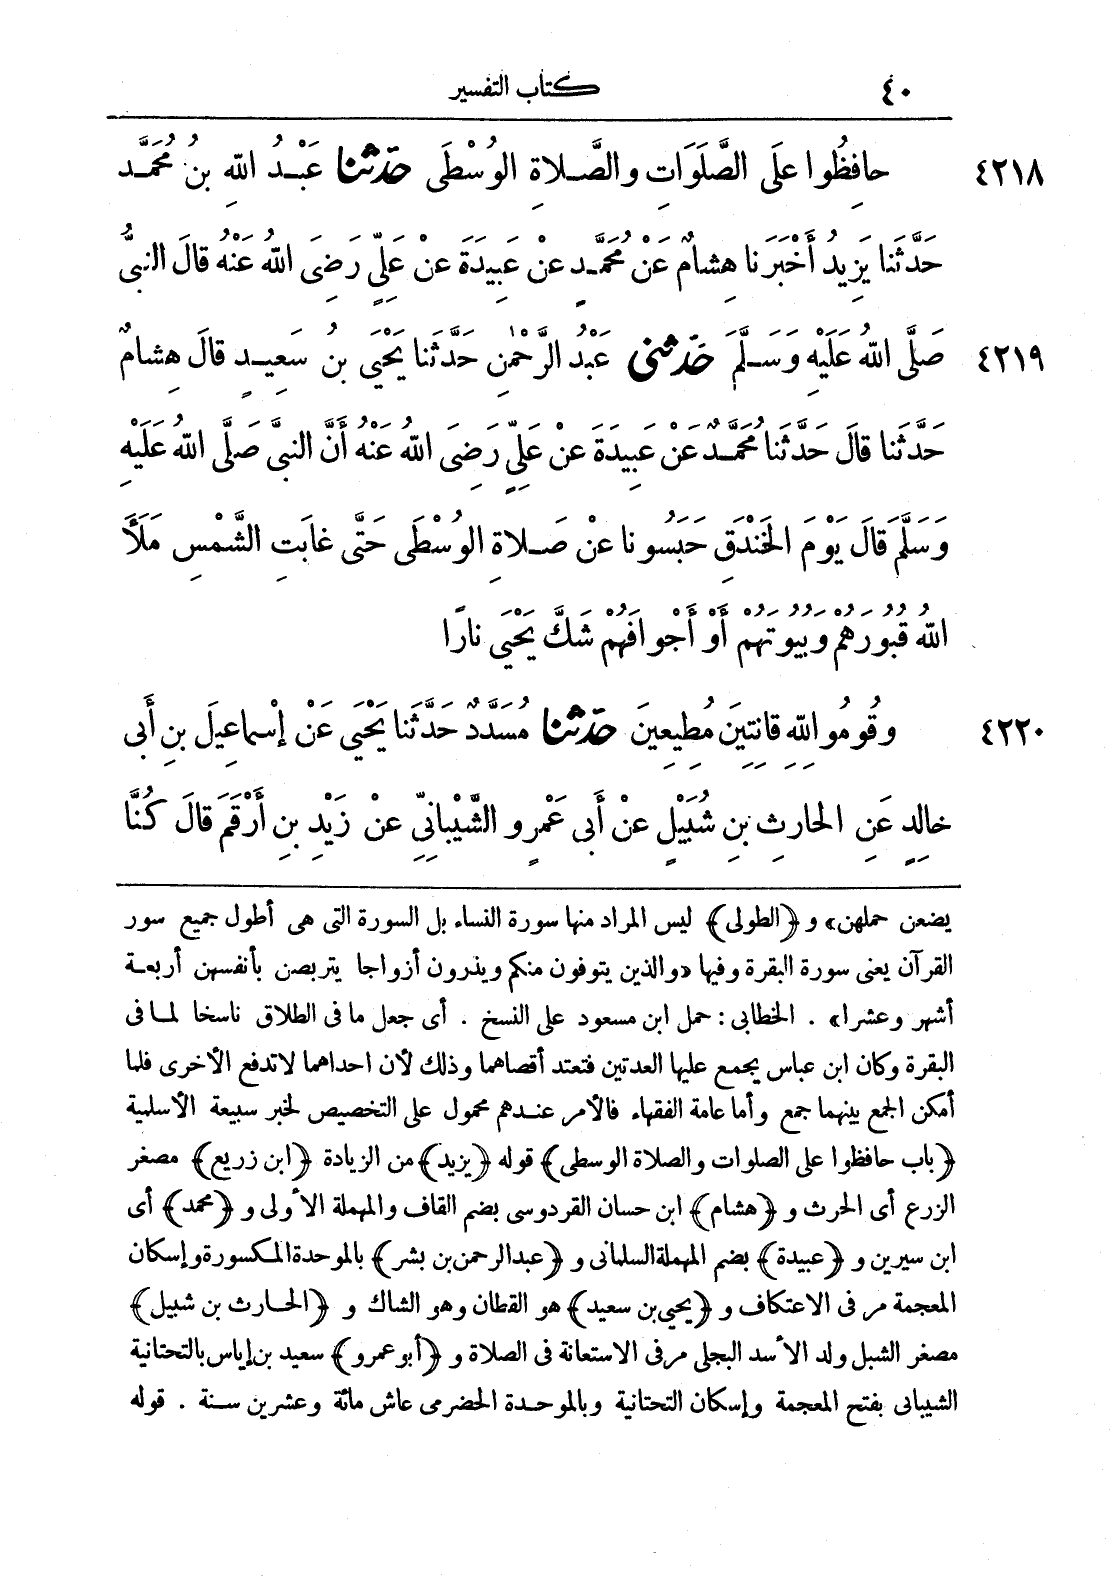 ٤٠ كتاب التفسير
٤٢١٨ حافِظُوا عَلَى الصَّلَوَاتِ والصَّلاةِ الوُسْطَى حَدَّثَنا عَبْدُ اللّهِ بنُ مُحَمَّد
حَدَّثَنا يَزِيدُ أَخْبَرَنا هِشامٌ عَنْ مُحَمَّدٍ عَنْ عَبِيدَةَ عَنْ عَلِيٍّ رَضِىَ اللّهُ عَنْهُ قالَ النبىُّ
٤٢١٩ صَلَّى اللّهُ عَلَيْهِ وَسَلَّمَ حَدَّثَنى عَبْدُ الرَّحْمٰنِ حَدَّثَنا يَحْيَى بنُ سَعِيدٍ قالَ هِشامٌ
حَدَّثَنا قالَ حَدَّثَنا مُحَمَّدٌ عَنْ عَبِيدَةَ عَنْ عَلِيٍّ رَضِىَ اللّهُ عَنْهُ أَنَّ النبىَّ صَلَّى اللّهُ عَلَيْهِ
وَسَلَّمَ قالَ يَوْمَ الخَنْدَقِ حَبَسُونا عَنْ صَلاةِ الوُسْطَى حَتَّى غابَتِ الشَّمْسُ مَلَأَ
اللّهُ قُبُورَهُمْ وَبُيُوتَهُمْ أَوْ أَجْوافَهُمْ شَكَّ يَحْيَى نارًا
٤٢٢٠ وقُومُوا لِلّهِ قانِتِينَ مُطِيعِينَ حَدَّثَنا مُسَدَّدٌ حَدَّثَنا يَحْيَى عَنْ إسْماعِيلَ بنِ أَبى
خالِدٍ عَنِ الحارِثِ بنِ شُبَيْلٍ عَنْ أَبى عَمْرٍو الشَّيْبانِىِّ عَنْ زَيْدِ بنِ أَرْقَمَ قالَ كُنَّا
يضعن حملهن» و﴿الطولى﴾ ليس المراد منها سورة النساء بل السورة التى هى أطول جميع سور
القرآن يعنى سورة البقرة وفيها «والذين يتوفون منكم ويذرون أزواجا يتربصن بأنفسهن أربعة
أشهر وعشرا» . الخطابى: حمل ابن مسعود على النسخ . أى جعل ما فى الطلاق ناسخا لما فى
البقرة وكان ابن عباس يجمع عليها العدتين فتعتد أقصاهما وذلك لأن احداهما لا تدفع الأخرى فلما
أمكن الجمع بينهما جمع وأما عامة الفقهاء فالأمر عندهم محمول على التخصيص لخبر سبيعة الأسلمية
﴿باب حافظوا على الصلوات والصلاة الوسطى﴾ قوله ﴿يزيد﴾ من الزيادة ﴿ابن زريع﴾ مصغر
الزرع أى الحرث و﴿هشام﴾ ابن حسان القردوسى بضم القاف والمهملة الأولى و﴿محمد﴾ أى
ابن سيرين و﴿عبيدة﴾ بضم المهملة السلمانى و﴿عبدالرحمن بن بشر﴾ بالموحدة المكسورة وإسكان
المعجمة مر فى الاعتكاف و﴿يحيى بن سعيد﴾ هو القطان وهو الشاك و﴿الحارث بن شبيل﴾
مصغر الشبل ولد الأسد البجلى مر فى الاستعانة فى الصلاة و﴿أبو عمرو﴾ سعيد بن إياس بالتحتانية
الشيبانى بفتح المعجمة وإسكان التحتانية وبالموحدة الحضرمى عاش مائة وعشرين سنة . قوله